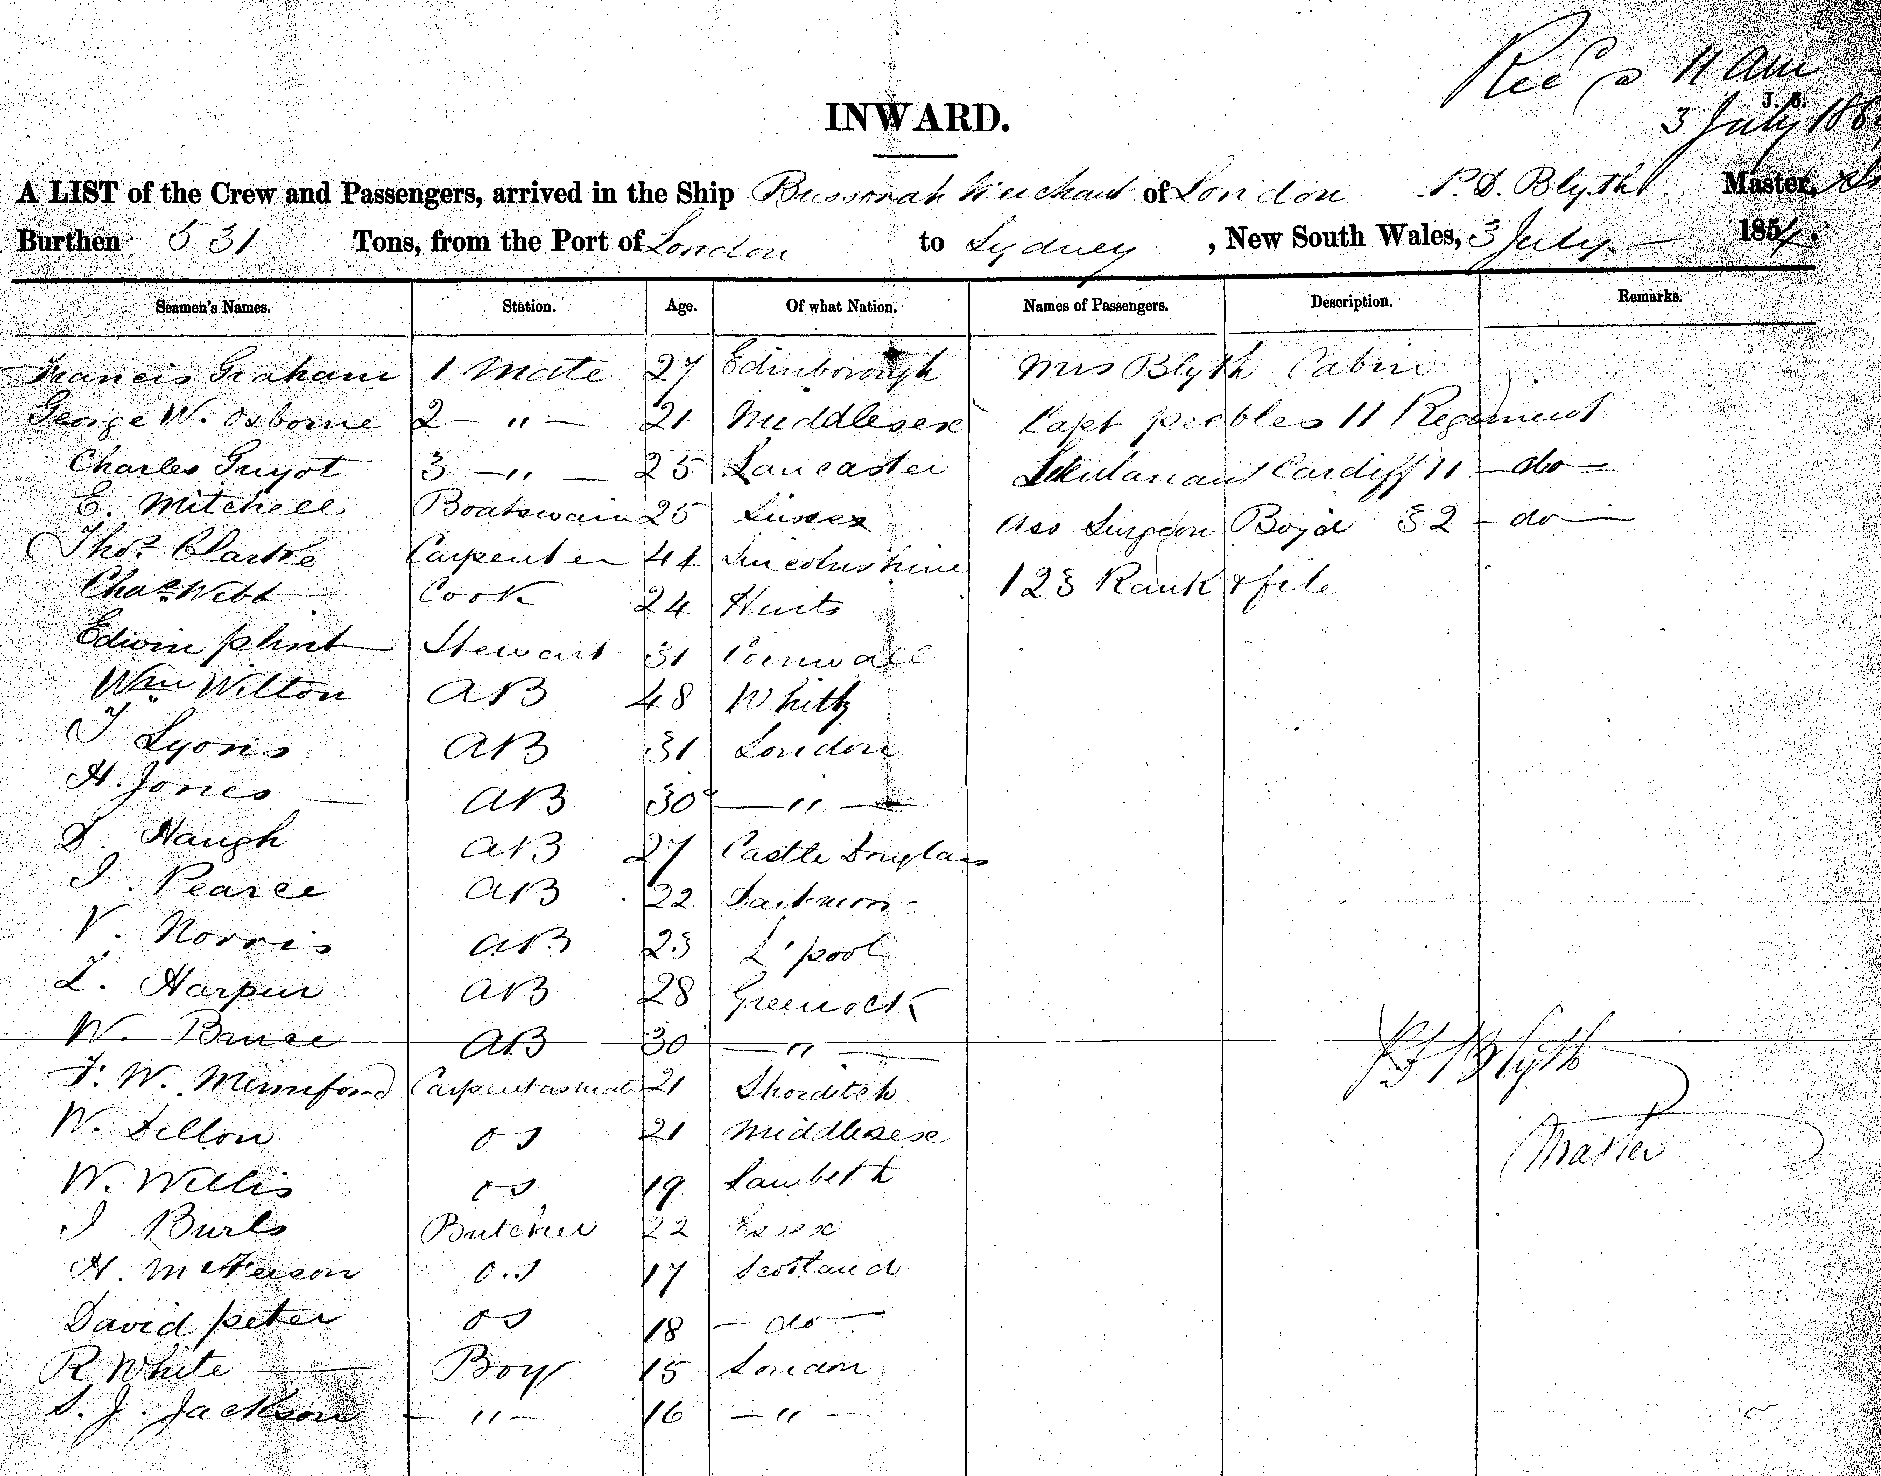 Rec'd @ 11 am
J. B.
3 July 186
INWARD.
A LIST of the Crew and Passengers, arrived in the Ship Bussorah Merchant of London P.D. Blyth Master,
Burthen 531 Tons, from the Port of London to Sydney, New South Wales, 3 July 1854.
Seamen's Names. Station. Age. Of what Nation. Names of Passengers. Description. Remarks.
Francis Graham 1 Mate 27 Edinborough Mrs Blyth Cabin
George W. Osborne 2 — " — 21 Middlesex Capt peebles 11 Regiment
Charles Guyot 3 — " — 25 Lancaster Cardiff 11 — do —
E. Mitchell Boatswain 25 Sussex Ass Surgeon Boyd 32 — do —
Thos Clarke Carpenter 44 Lincolnshire 123 Rank & file
Chas Webb Cook 24 Hunts
Edwin plint Stewart 31 Cornwall
Wm Wilton AB 48 Whitby
T Lyons AB 31 London
H. Jones AB 30 — " —
D. Haugh AB 27 Castle Douglass
J. Pearce AB 22
V. Norris AB 23 L'pool
L. Harpur AB 28 Greenock
W. Bruce AB 30 — " —
F. W. Carpentasmate 21 Shorditch
W. Dillon OS 21 Middlesex
W. Willis OS 19 Lambeth
J Burls Butcher 22 Essex
H. OS 17 Scotland
David peter OS 18 — do —
R White Boy 15 London
S. J. Jackson — " — 16 — " —
Blyth
Master